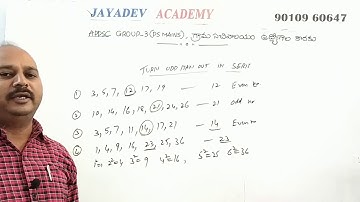 JAYADEV ACADEMY
90109 60647
APPSC GROUP-3 (PS MAINS), గ్రామ సచివాలయం
TURN ODD MAN OUT IN SERIES
① 3, 5, 7, 12, 17, 19 — 12 Even no
② 10, 14, 16, 18, 21, 24, 26 — 21 odd no
③ 3, 5, 7, 11, 14, 17, 21 — 14 Even no
④ 1, 4, 9, 16, 23, 25, 36 — 23
1²= 2²=4 3²=9 4²=16, 5²=25 6²=36